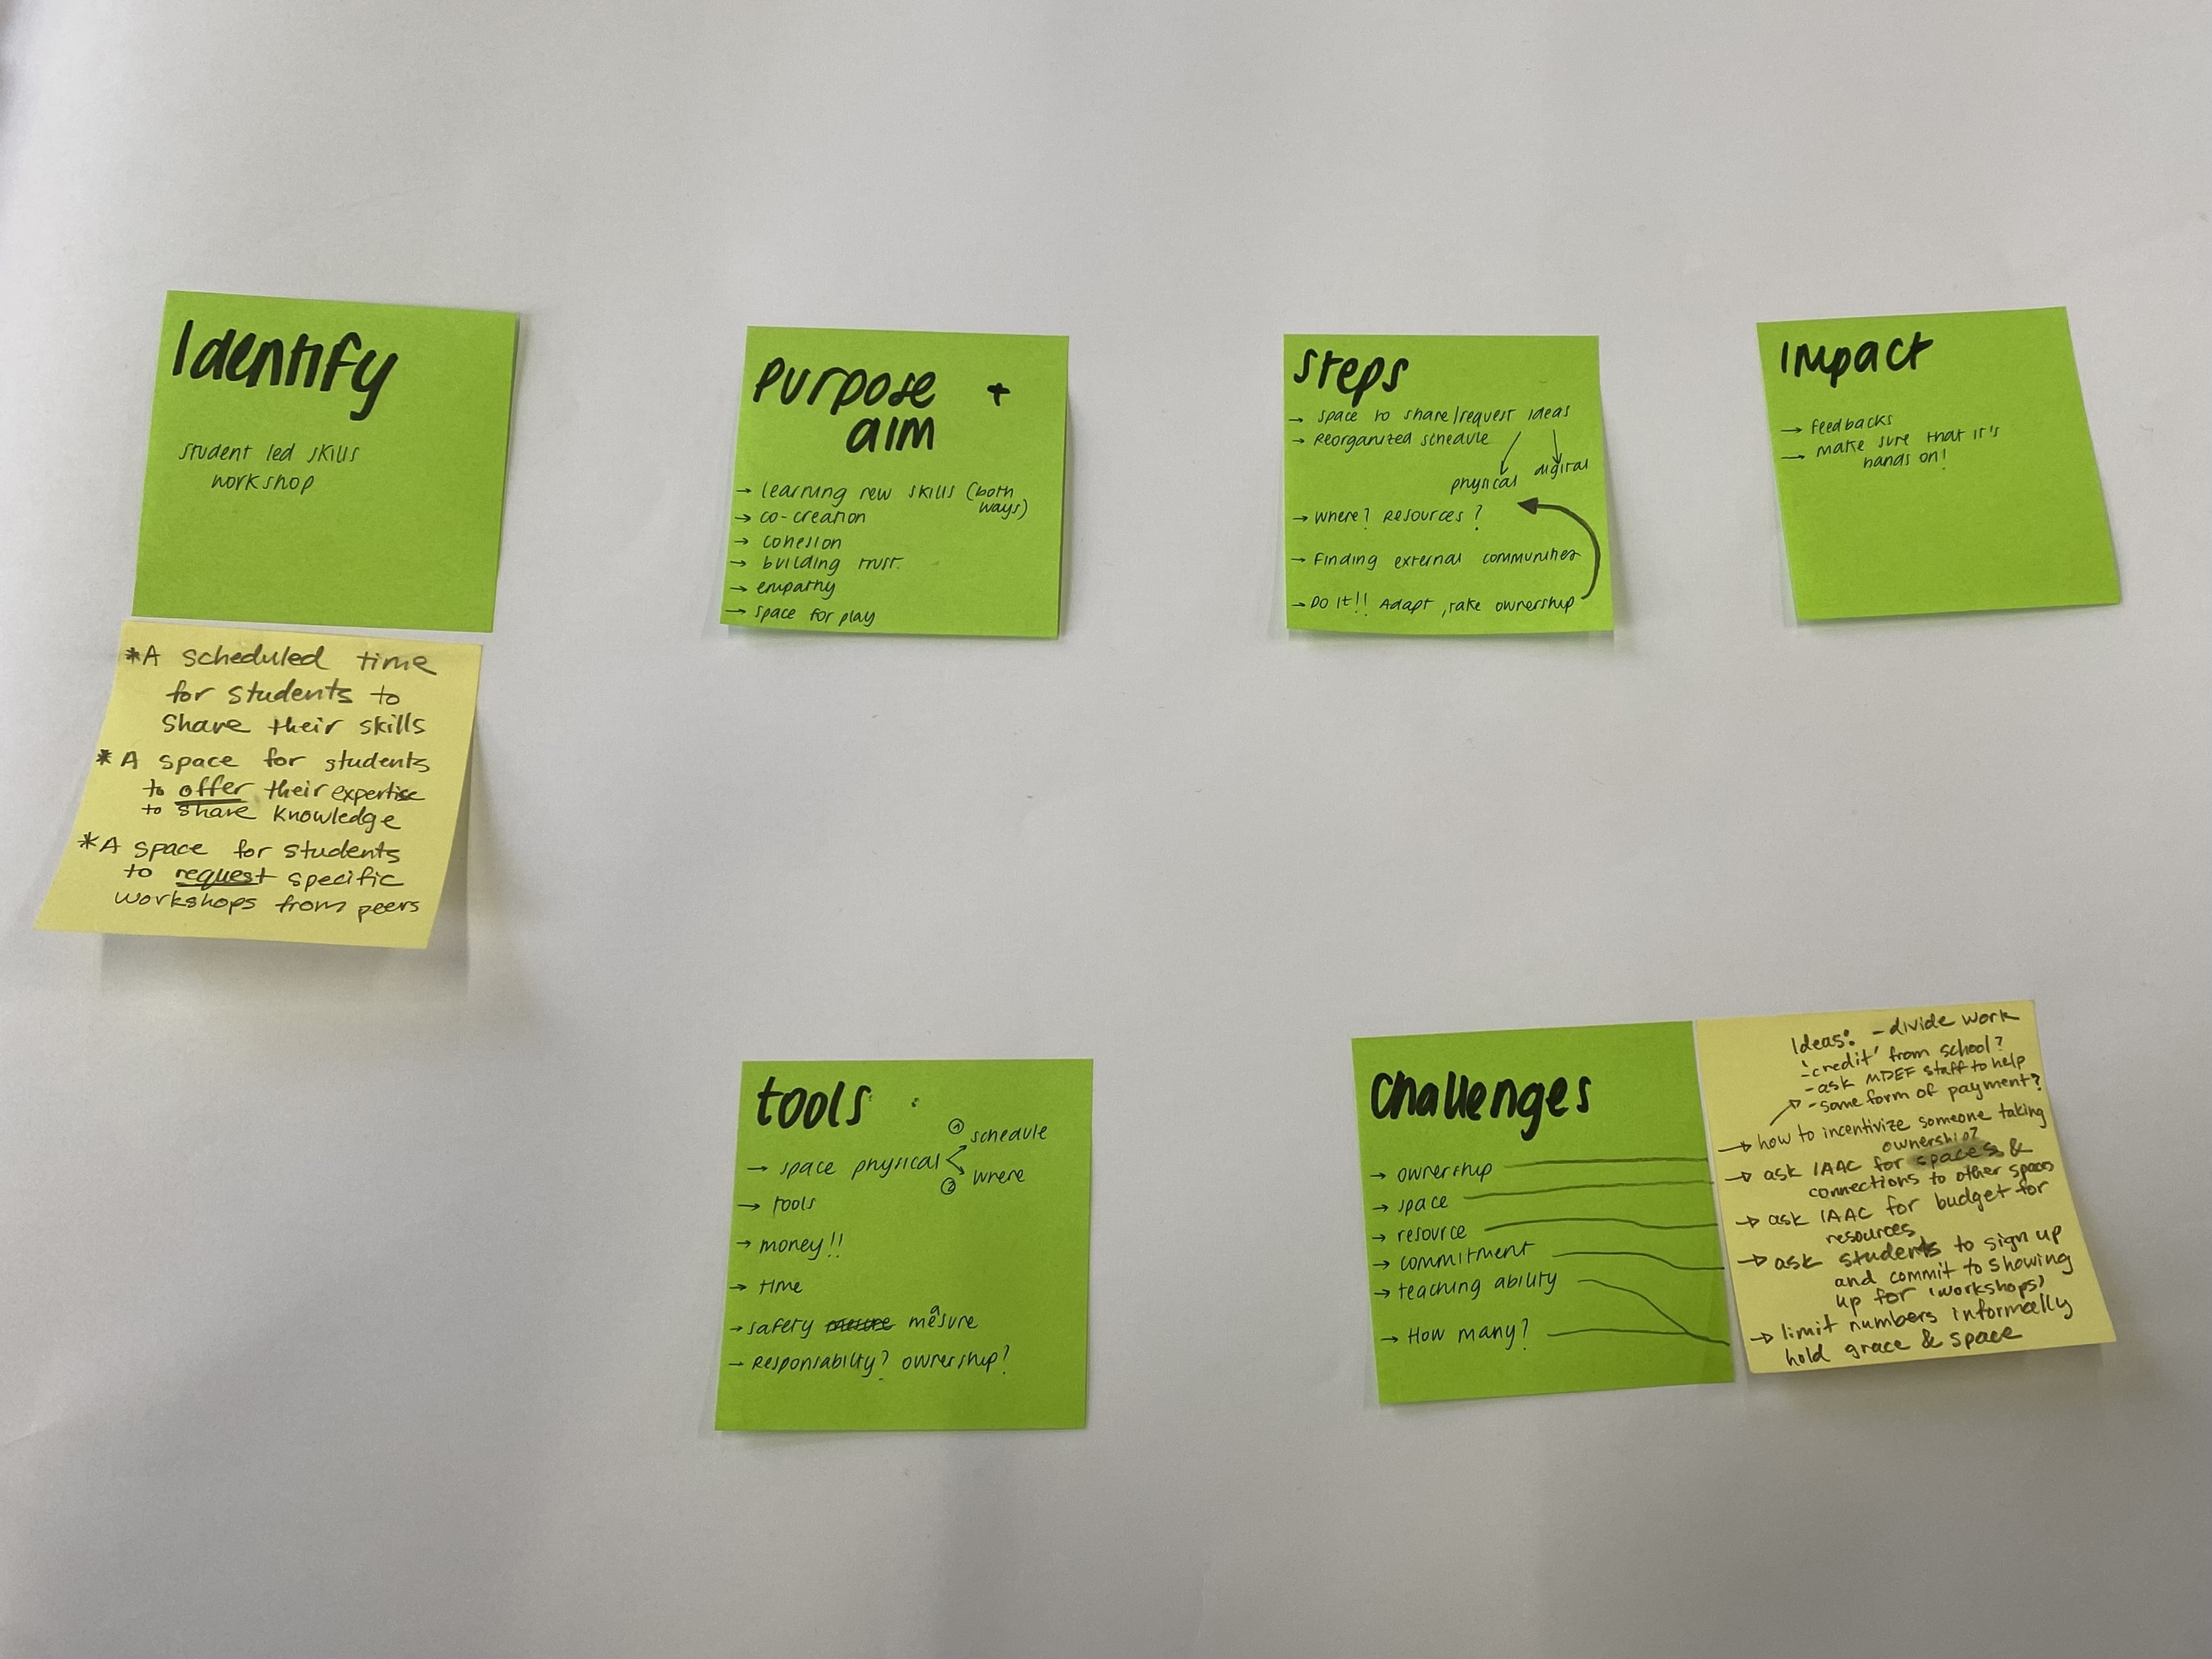 Identify
student led skills
workshop
*A scheduled time
for students to
share their skills
*A space for students
to offer their expertise
to share knowledge
*A space for students
to request specific
workshops from peers
purpose +
aim
→ learning new skills (both
ways)
→ co-creation
→ cohesion
→ building trust.
→ empathy
→ space for play
steps
→ space to share/request ideas
→ Reorganized schedule
physical digital
→ where? Resources?
→ Finding external communities
→ Do it!! Adapt, take ownership
impact
→ feedbacks
→ make sure that it's
hands on!
tools :
① schedule
→ space physical
② where
→ tools
→ money!!
→ time
→ safety mesure measure
→ Responsabilty? ownership?
challenges
→ ownership
→ space
→ resource
→ commitment
→ teaching ability
→ How many?
Ideas: - divide work
- 'credit' from school?
- ask MDEF staff to help
- some form of payment?
→ how to incentivize someone taking
ownership?
→ ask IAAC for spaces &
connections to other spaces
→ ask IAAC for budget for
resources
→ ask students to sign up
and commit to showing
up for 'workshops'
→ limit numbers informally
hold grace & space